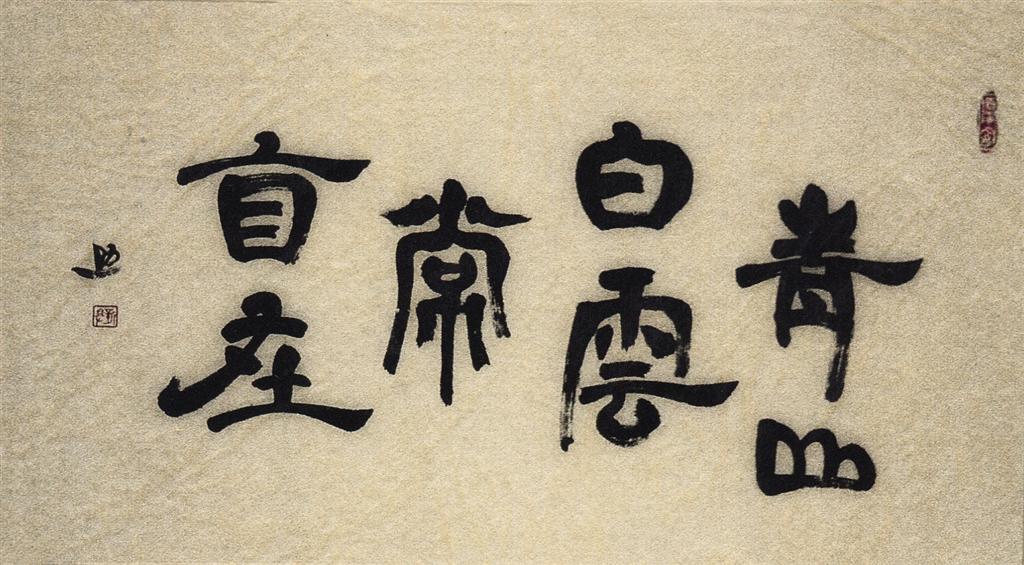 青山
白雲
常
自在